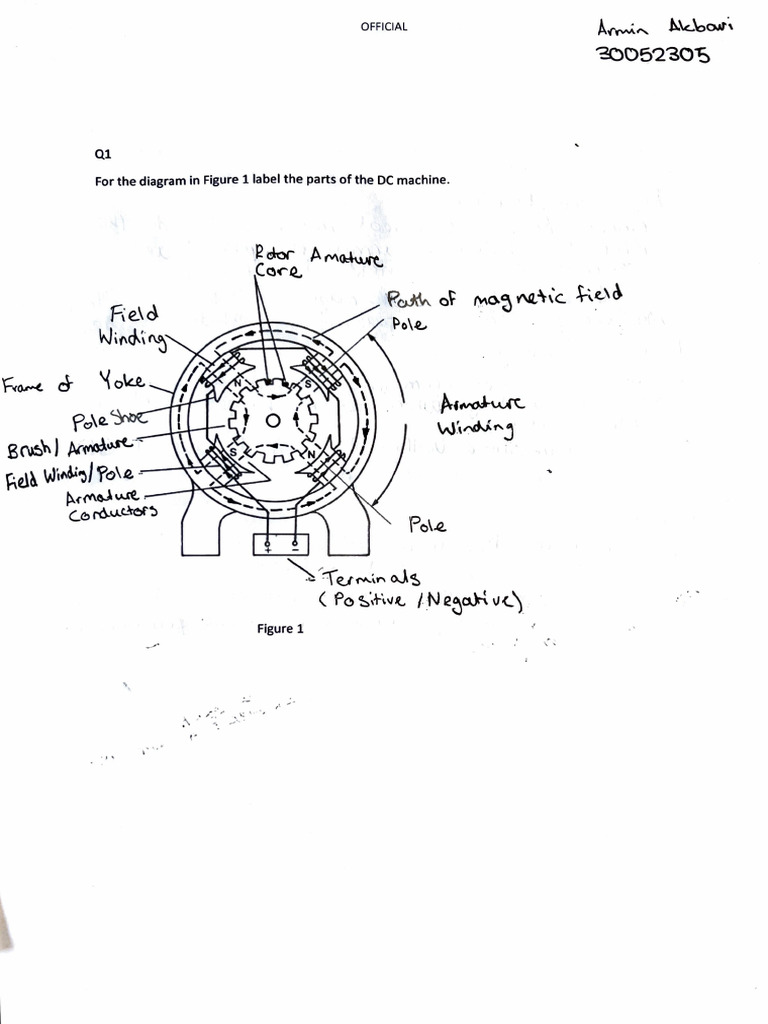 OFFICIAL
Armin Akbari
30052305
Q1
For the diagram in Figure 1 label the parts of the DC machine.
Rotor Amature
Core
Path of magnetic field
Field
Winding
Pole
Frame of Yoke
N
S
Armature
Winding
Pole Shoe
Brush/ Armature
S
N
Field Winding/Pole
Armature
Conductors
Pole
+
–
Terminals
(Positive / Negative)
Figure 1